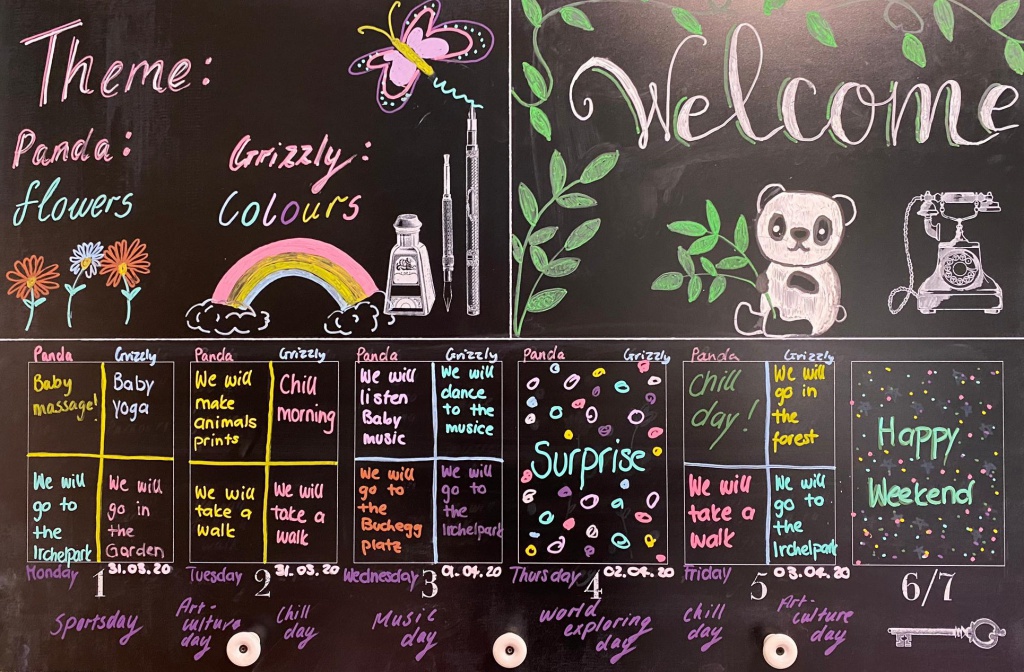 Theme:
Panda:
flowers
Grizzly:
Colours
Welcome
Panda Grizzly
Baby
massage!
Baby
yoga
We will
go to
the
Irchelpark
We will
go in
the
Garden
Monday 1 31.03.20
Sportsday
Panda Grizzly
We will
make
animals
prints
Chill
morning
We will
take a
walk
We will
take a
walk
Tuesday 2 31.03.20
Art-
culture
day
Chill
day
Panda Grizzly
We will
listen
Baby
music
We will
dance
to the
musice
We will
go to
the
Buchegg
platz
We will
go to
the
Irchelpark
Wednesday 3 01.04.20
Music
day
Panda Grizzly
Surprise
Thursday 4 02.04.20
world
exploring
day
Panda Grizzly
Chill
day!
We will
go in
the
forest
We will
take a
walk
We will
go to
the
Irchelpark
Friday 5 03.04.20
Chill
day
Art-
culture
day
Happy
Weekend
6/7